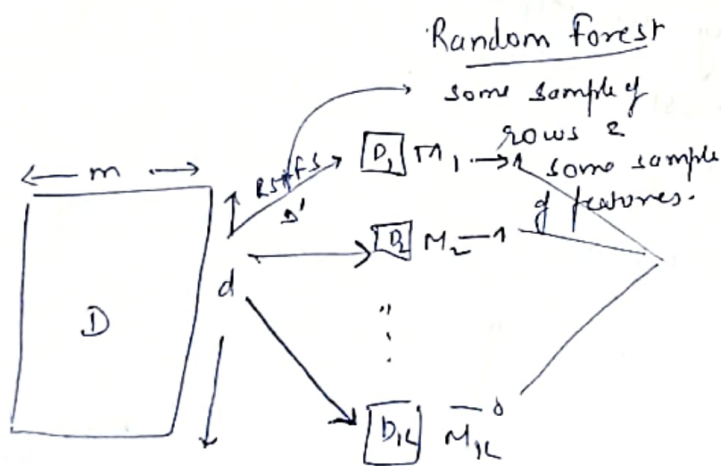 Random Forest
some sample of
rows &
some sample
of features.
m
RS+FS
D'
D
d
D1 M1 → 1
D2 M2 — 1
DK MK — 0